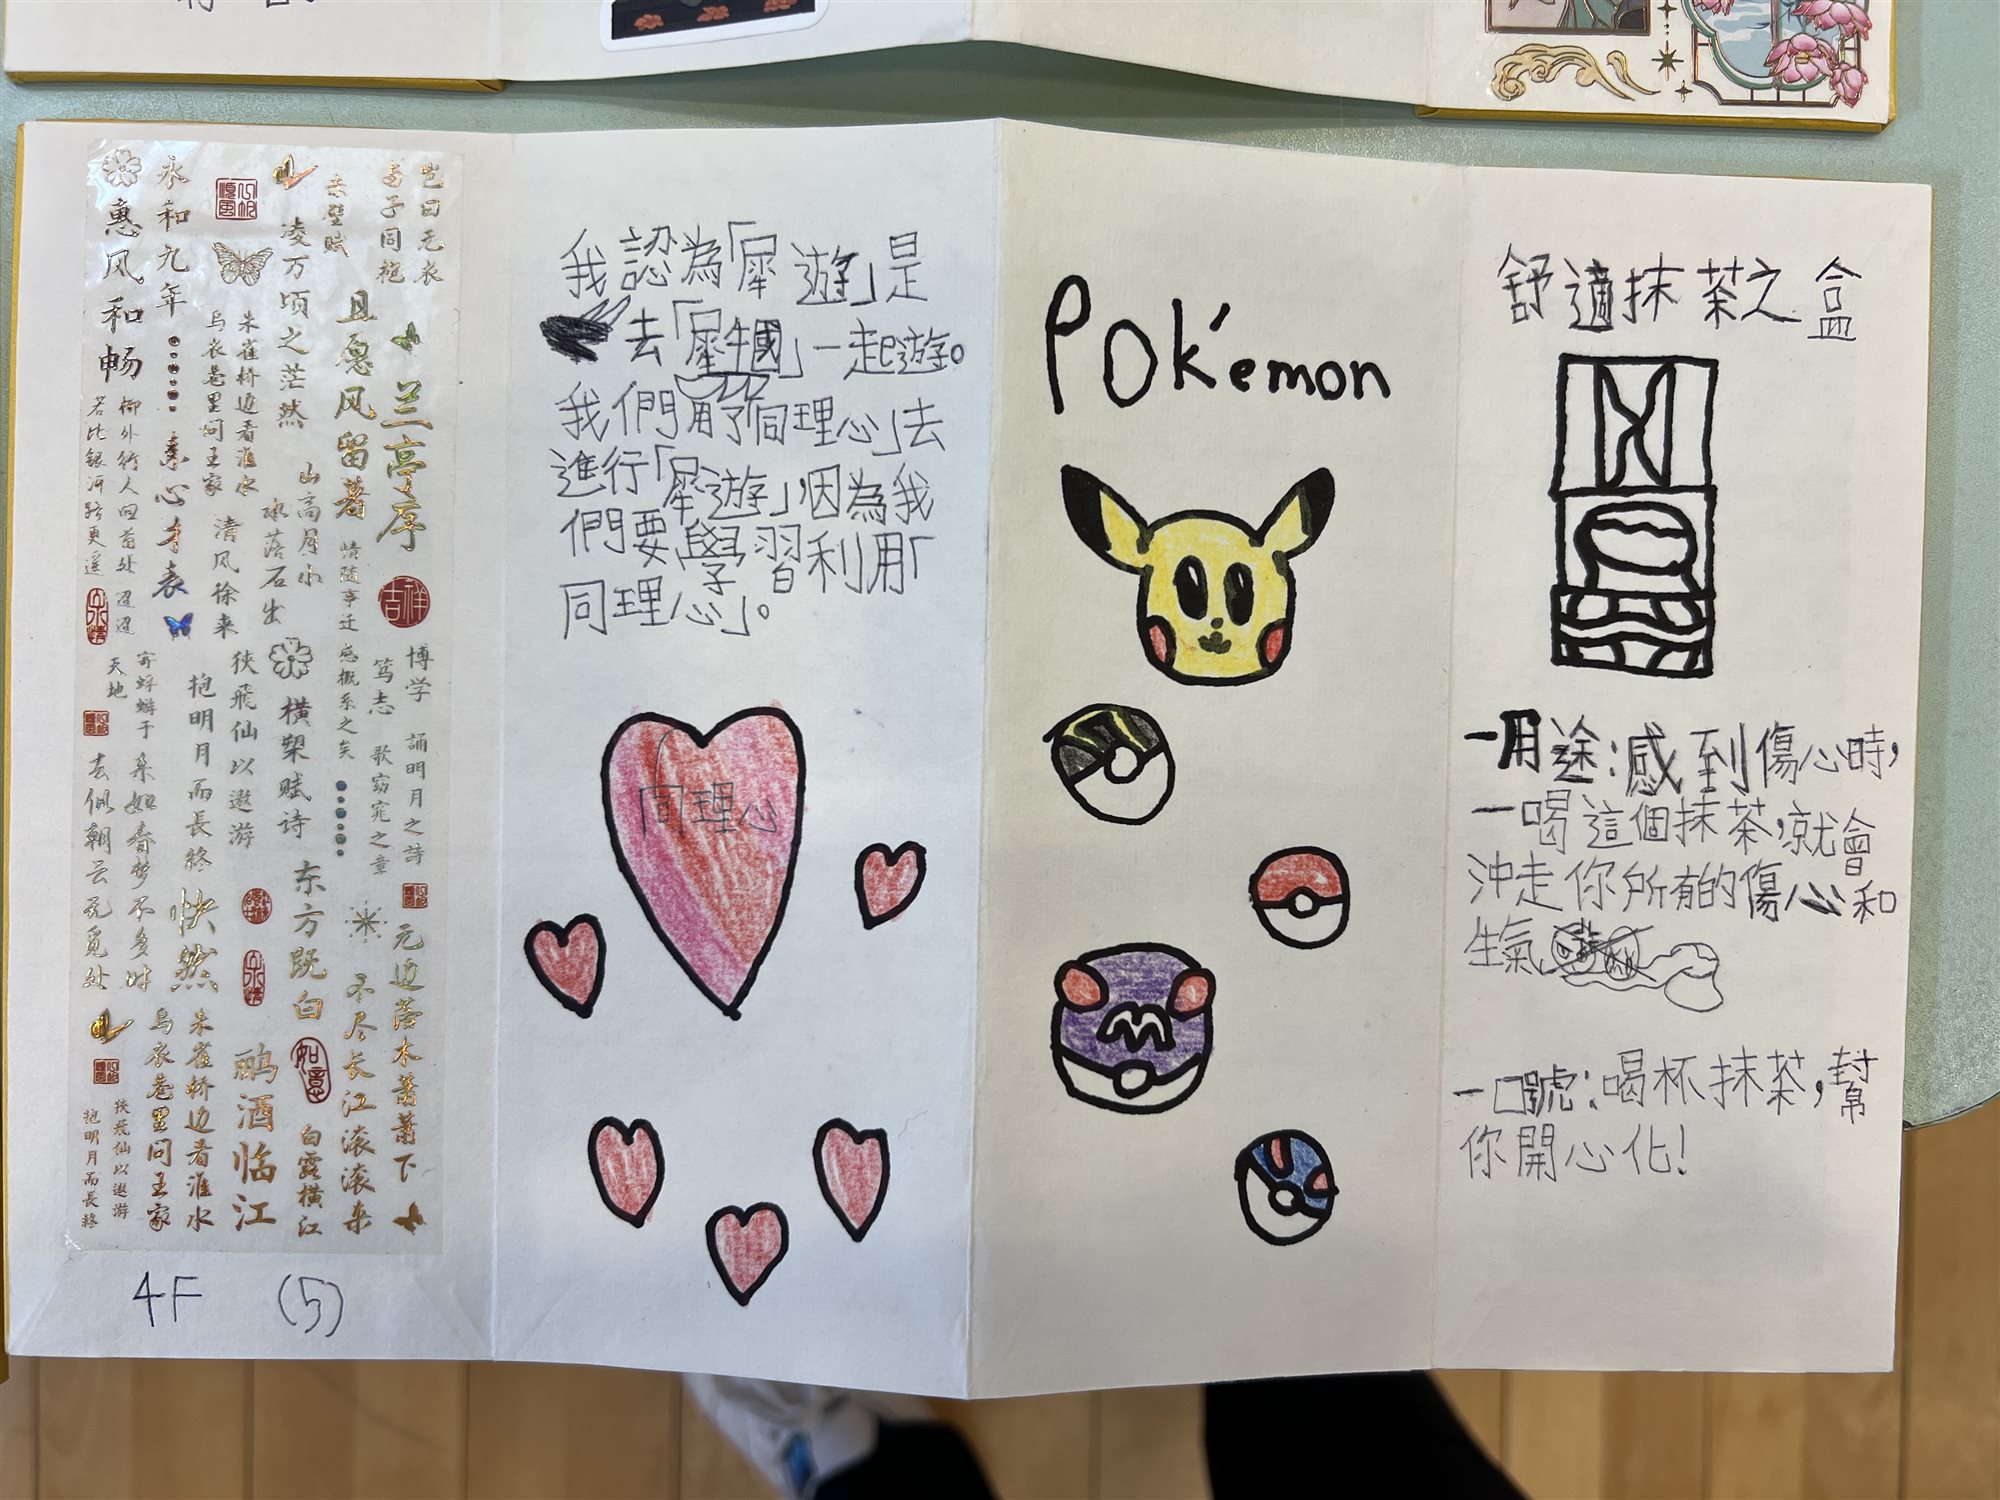 惠风和畅
永和九年
凌万顷之茫然
赤壁赋
与子同袍
岂曰无衣
且愿风留著
兰亭序
朱雀桥边看淮水
乌衣巷里问王家
素心才表
柳外行人回首处
迢迢
若比银河路更遥
清风徐来
山高月小
水落石出
情随事迁
感慨系之矣
吉祥
博学
笃志
诵明月之詩
歌窈窕之章
寄蜉蝣于
天地
抱明月而長終
狭飛仙以遨游
横槊赋诗
来如春梦不多时
去似朝云无觅处
快然
东方既白
无边落木萧萧下
不尽长江滚滚来
朱雀桥边看淮水
乌衣巷里问王家
酾酒临江
如意
白露横江
狭飛仙以遨游
抱明月而長終
4F (5)
我認為「犀遊」是
去「犀牛國」一起遊。
我們用了「同理心」去
進行「犀遊」,因為我
們要學習利用「
同理心」。
同理心
POk'emon
M
舒適抹茶之盒
一用途:感到傷心時,
一喝這個抹茶,就會
沖走你所有的傷心和
生氣
一口號:喝杯抹茶,幫
你開心化!